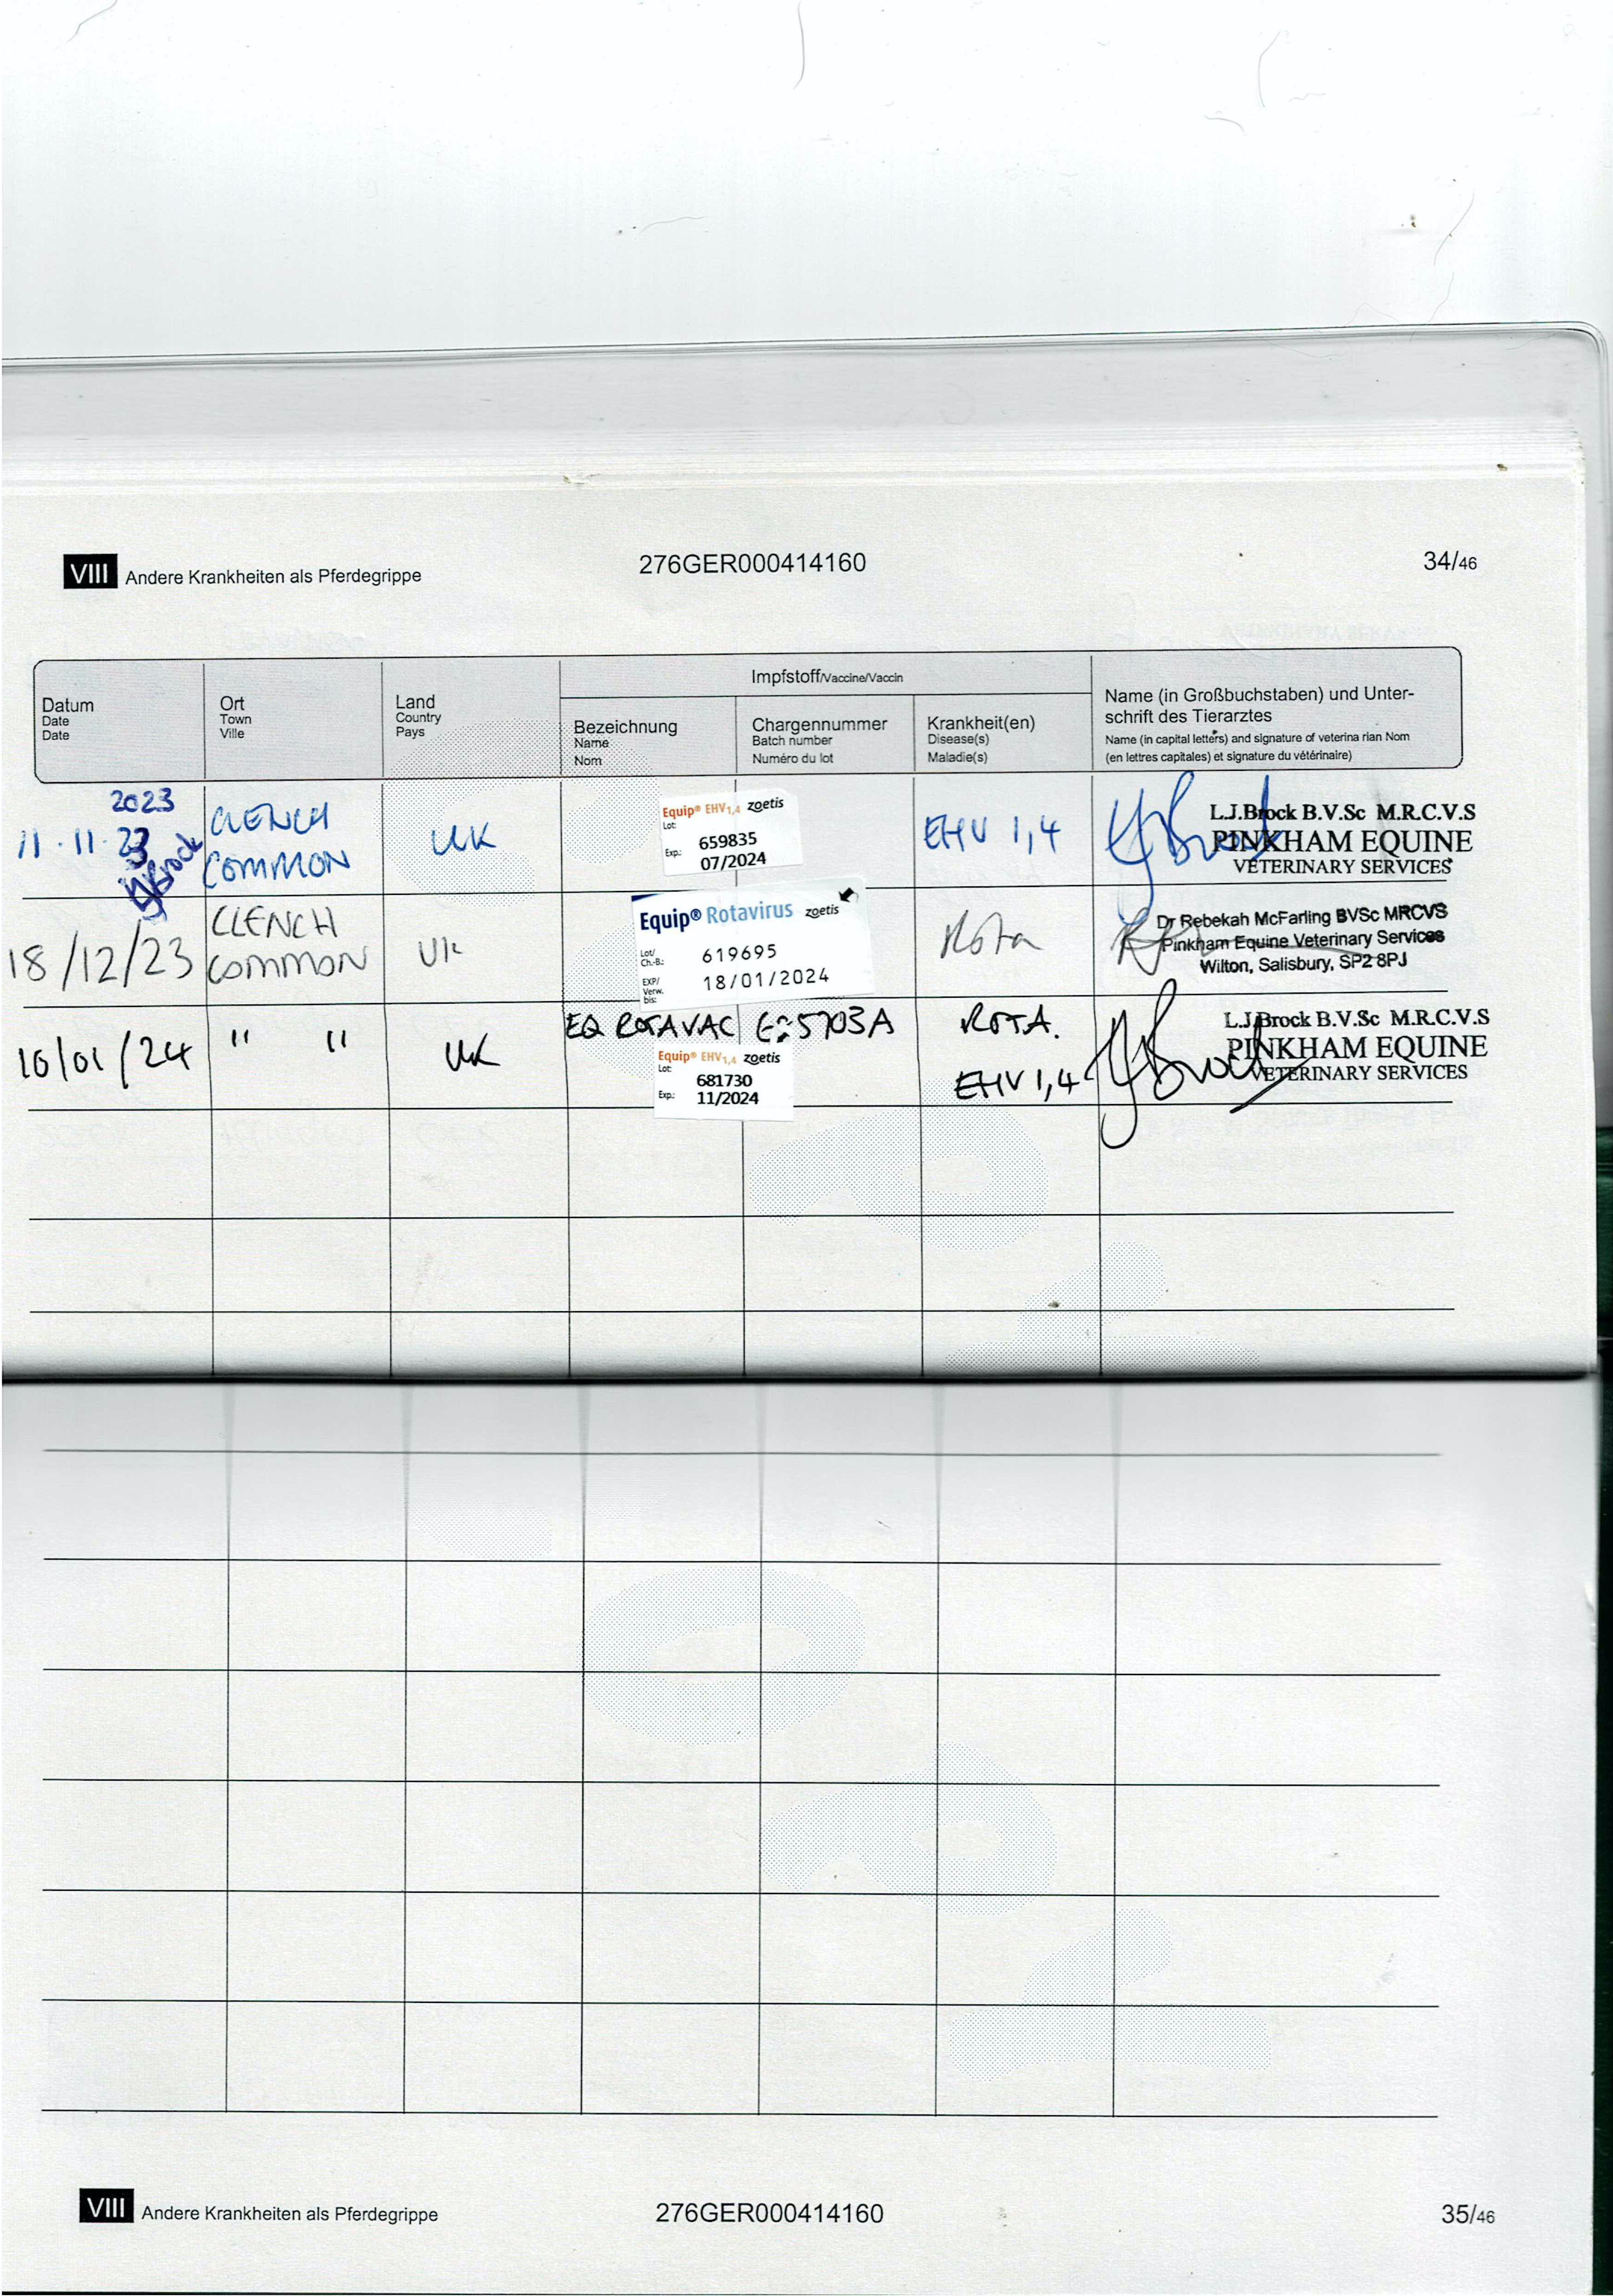 VIII Andere Krankheiten als Pferdegrippe 276GER000414160 34/46
Impfstoff/Vaccine/Vaccin
Datum
Date
Date
Ort
Town
Ville
Land
Country
Pays
Bezeichnung
Name
Nom
Chargennummer
Batch number
Numéro du lot
Krankheit(en)
Disease(s)
Maladie(s)
Name (in Großbuchstaben) und Unter-
schrift des Tierarztes
Name (in capital letters) and signature of veterina rian Nom
(en lettres capitales) et signature du vétérinaire)
2023
11.11.23
LJBrock
CLENCH
COMMON
UK
Equip® EHV1,4 zoetis
Lot:
659835
Exp.:
07/2024
EHV 1,4
L.J.Brock B.V.Sc M.R.C.V.S
PINKHAM EQUINE
VETERINARY SERVICES
18/12/23
CLENCH
COMMON
UK
Equip® Rotavirus zoetis
Lot/
Ch.-B.:
619695
EXP/
Verw.
bis:
18/01/2024
Rota
Dr Rebekah McFarling BVSc MRCVS
Pinkham Equine Veterinary Services
Wilton, Salisbury, SP2 8PJ
10/01/24
" "
UK
EQ ROTAVAC
Equip® EHV1,4 zoetis
Lot:
681730
Exp.:
11/2024
ROTA.
EHV 1,4
L.J.Brock B.V.Sc M.R.C.V.S
PINKHAM EQUINE
VETERINARY SERVICES
VIII Andere Krankheiten als Pferdegrippe 276GER000414160 35/46